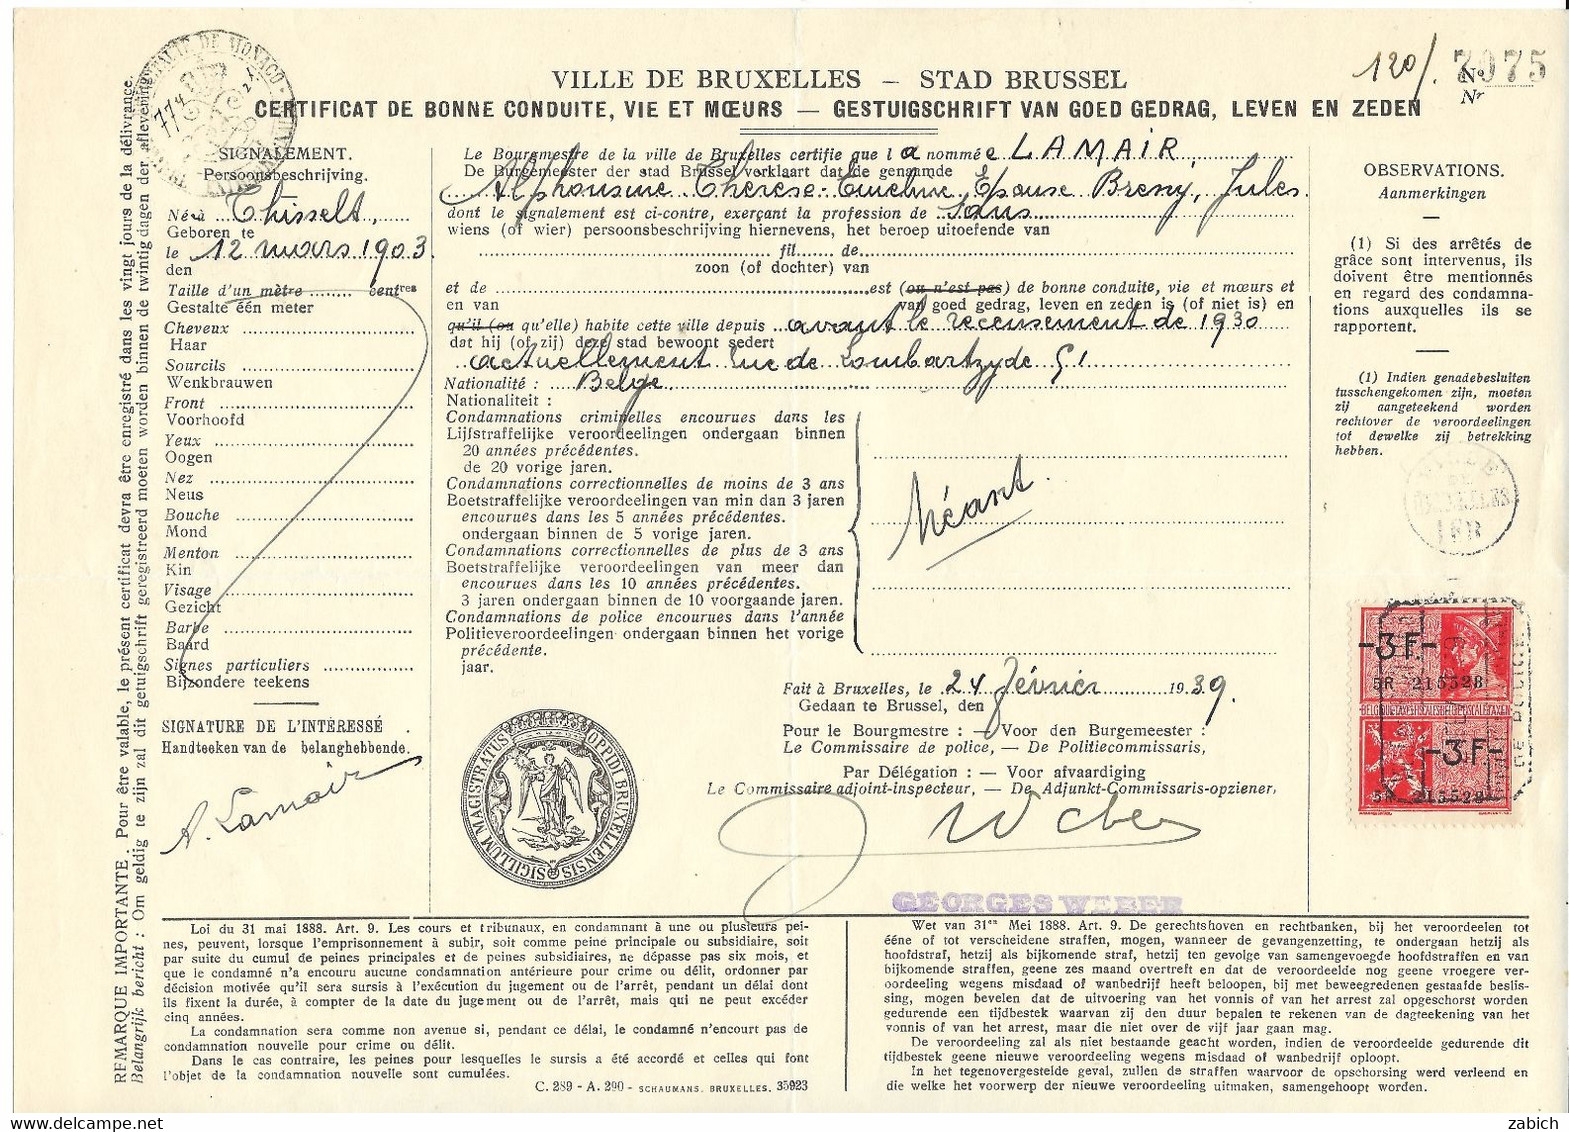 VILLE DE BRUXELLES — STAD BRUSSEL
120/. 7075
No
Nr
CERTIFICAT DE BONNE CONDUITE, VIE ET MŒURS — GESTUIGSCHRIFT VAN GOED GEDRAG, LEVEN EN ZEDEN
DE MONACO
774
REMARQUE IMPORTANTE. Pour être valable, le présent certificat devra être enregistré dans les vingt jours de la délivrance.
Belangrijk bericht : Om geldig te zijn zal dit getuigschrift geregistreerd moeten worden binnen de twintig dagen der aflevering.
SIGNALEMENT.
Persoonsbeschrijving.
Né à Thisselt,
Geboren te
le 12 mars 1903.
den
Taille d'un mètre ........ centres
Gestalte één meter
Cheveux
Haar
Sourcils
Wenkbrauwen
Front
Voorhoofd
Yeux
Oogen
Nez
Neus
Bouche
Mond
Menton
Kin
Visage
Gezicht
Barbe
Baard
Signes particuliers
Bijzondere teekens
SIGNATURE DE L'INTÉRESSÉ
Handteeken van de belanghebbende.
A. Lamair
Le Bourgmestre de la ville de Bruxelles certifie que l a nommée LAMAIR,
De Burgemeester der stad Brussel verklaart dat de genaamde
Alphonsine Thérèse-Emeline, Epouse Bresny, Jules
dont le signalement est ci-contre, exerçant la profession de sans
wiens (of wier) persoonsbeschrijving hiernevens, het beroep uitoefende van
fil....... de
zoon (of dochter) van
et de ........ est (ou n'est pas) de bonne conduite, vie et mœurs et
en van van goed gedrag, leven en zeden is (of niet is) en
qu'il (ou qu'elle) habite cette ville depuis avant le recensement de 1930
dat hij (of zij) deze stad bewoont sedert
actuellement rue de Lombartzyde 51
Nationalité : Belge
Nationaliteit :
Condamnations criminelles encourues dans les
Lijfstraffelijke veroordeelingen ondergaan binnen
20 années précédentes.
de 20 vorige jaren.
Condamnations correctionnelles de moins de 3 ans
Boetstraffelijke veroordeelingen van min dan 3 jaren
encourues dans les 5 années précédentes.
ondergaan binnen de 5 vorige jaren.
Condamnations correctionnelles de plus de 3 ans
Boetstraffelijke veroordeelingen van meer dan
encourues dans les 10 années précédentes.
3 jaren ondergaan binnen de 10 voorgaande jaren.
Condamnations de police encourues dans l'année
Politieveroordeelingen ondergaan binnen het vorige
précédente.
jaar.
Néant
Fait à Bruxelles, le 24 février 1939.
Gedaan te Brussel, den
Pour le Bourgmestre : — Voor den Burgemeester :
Le Commissaire de police, — De Politiecommissaris,
Par Délégation : — Voor afvaardiging
Le Commissaire adjoint-inspecteur, — De Adjunkt-Commissaris-opziener,
Weber
GEORGES WEBER
SIGILLUM MAGISTRATUS OPPIDI BRUXELLENSIS
OBSERVATIONS.
Aanmerkingen
(1) Si des arrêtés de
grâce sont intervenus, ils
doivent être mentionnés
en regard des condamna-
tions auxquelles ils se
rapportent.
(1) Indien genadebesluiten
tusschengekomen zijn, moeten
zij aangeteekend worden
rechtover de veroordeelingen
tot dewelke zij betrekking
hebben.
-3F-
5R 215528
-3F-
5R 215528
DE POLICE
Loi du 31 mai 1888. Art. 9. Les cours et tribunaux, en condamnant à une ou plusieurs pei-
nes, peuvent, lorsque l'emprisonnement à subir, soit comme peine principale ou subsidiaire, soit
par suite du cumul de peines principales et de peines subsidiaires, ne dépasse pas six mois, et
que le condamné n'a encouru aucune condamnation antérieure pour crime ou délit, ordonner par
décision motivée qu'il sera sursis à l'exécution du jugement ou de l'arrêt, pendant un délai dont
ils fixent la durée, à compter de la date du jugement ou de l'arrêt, mais qui ne peut excéder
cinq années.
La condamnation sera comme non avenue si, pendant ce délai, le condamné n'encourt pas de
condamnation nouvelle pour crime ou délit.
Dans le cas contraire, les peines pour lesquelles le sursis a été accordé et celles qui font
l'objet de la condamnation nouvelle sont cumulées.
C. 289 - A. 290 - SCHAUMANS, BRUXELLES. 35923
Wet van 31en Mei 1888. Art. 9. De gerechtshoven en rechtbanken, bij het veroordeelen tot
ééne of tot verscheidene straffen, mogen, wanneer de gevangenzetting, te ondergaan hetzij als
hoofdstraf, hetzij als bijkomende straf, hetzij ten gevolge van samengevoegde hoofdstraffen en van
bijkomende straffen, geene zes maand overtreft en dat de veroordeelde nog geene vroegere ver-
oordeeling wegens misdaad of wanbedrijf heeft beloopen, bij met beweegredenen gestaafde beslis-
sing, mogen bevelen dat de uitvoering van het vonnis of van het arrest zal opgeschorst worden
gedurende een tijdbestek waarvan zij den duur bepalen te rekenen van de dagteekening van het
vonnis of van het arrest, maar die niet over de vijf jaar gaan mag.
De veroordeeling zal als niet bestaande geacht worden, indien de veroordeelde gedurende dit
tijdbestek geene nieuwe veroordeeling wegens misdaad of wanbedrijf oploopt.
In het tegenovergestelde geval, zullen de straffen waarvoor de opschorsing werd verleend en
die welke het voorwerp der nieuwe veroordeeling uitmaken, samengehoopt worden.
zabich